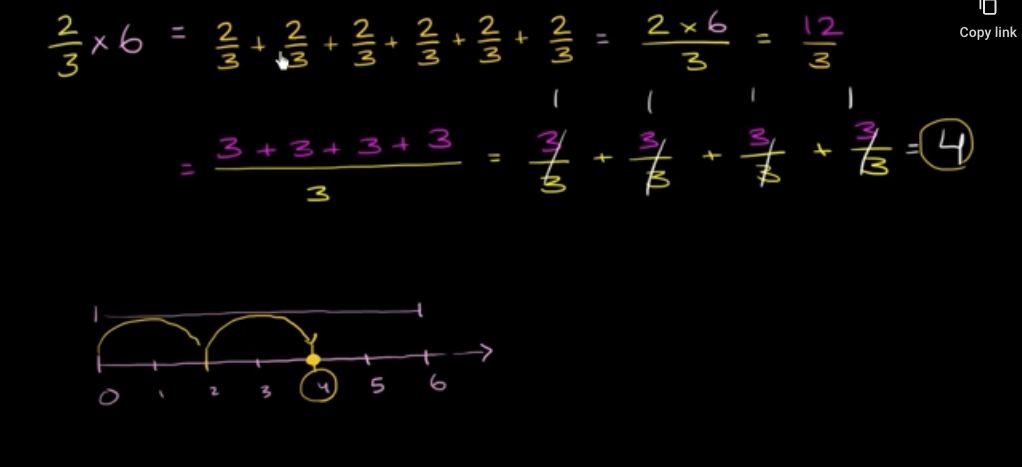 Copy link
2/3 × 6 = 2/3 + 2/3 + 2/3 + 2/3 + 2/3 + 2/3 = 2 × 6/3 = 12/3
1 1 1 1
= 3 + 3 + 3 + 3/3 = 3/3 + 3/3 + 3/3 + 3/3 = 4
0 1 2 3 4 5 6